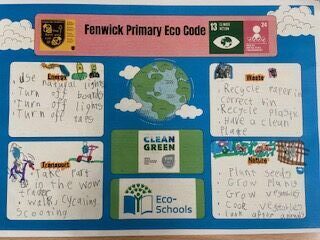 Fenwick Primary Eco Code
13 CLIMATE ACTION
24
Energy
Use natural light
Turn off boards
Turn off lights
Turn off taps
Waste
Recycle paper in
correct bin
Recycle plastic
Have a clean
plate
CLEAN
GREEN
Transport
Take part
in the WOW
Walk, Cycling
Scooting
Eco-
Schools
Nature
Plant seeds
Grow
Grow vegetables
Cook vegetables
look after